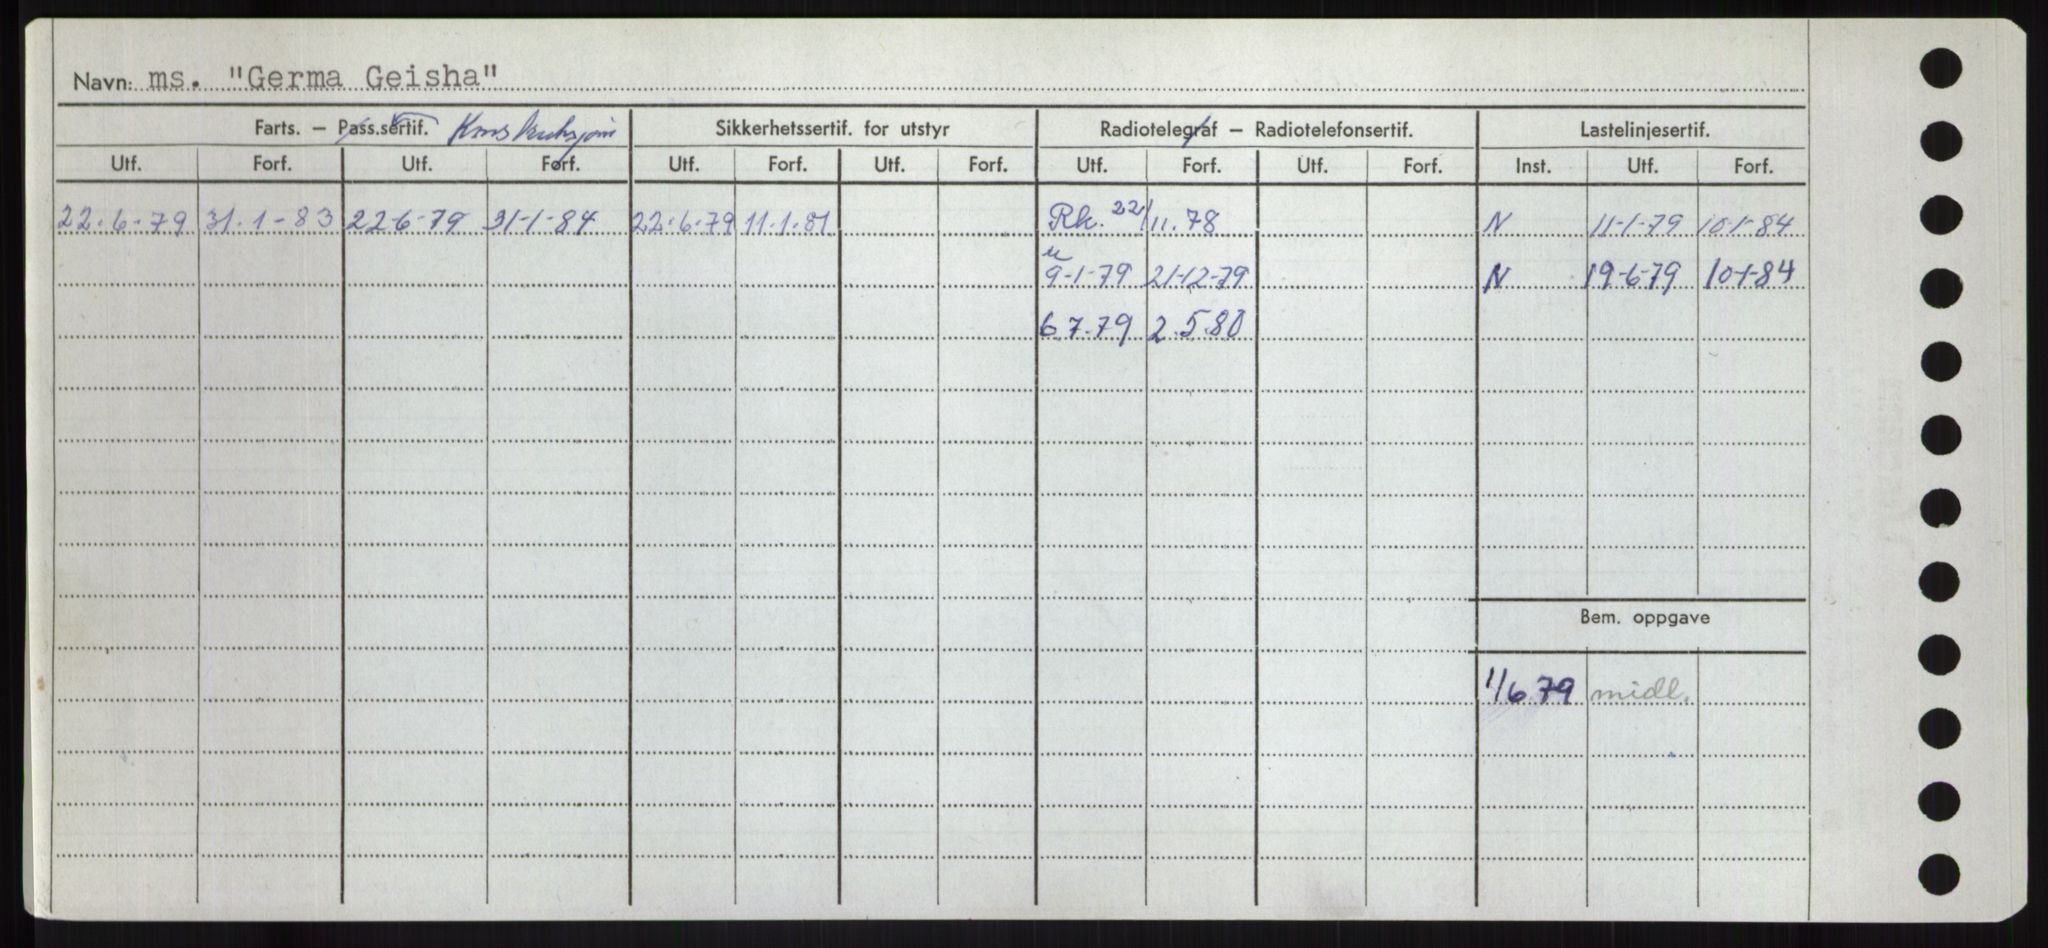 Navn: ms. "Germa Geisha"
Farts. – Pass.sertif. Konstruksjon Sikkerhetssertif. for utstyr Radiotelegraf – Radiotelefonsertif. Lastelinjesertif.
Utf. Forf. Utf. Forf. Utf. Forf. Utf. Forf. Utf. Forf. Utf. Forf. Inst. Utf. Forf.
22.6.79 31.1-83 22-6-79 31-1-84 22.6.79 11.1.81 Rk. 22/11.78 N 11-1-79 10-1-84
9-1-79 21-12-79 N 19-6-79 10-1-84
6.7.79 2.5.80
Bem. oppgave
1/6.79 midl.